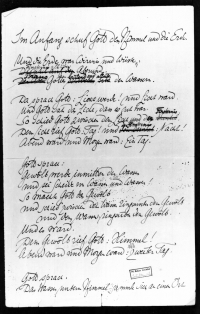 Im Anfang schuf Gott den Himmel und die Erde.
Und die Erde war Wirrnis und Wüste,
Abgrund
Gottes den Wassern.
Da sprach Gott: Licht werde! und Licht ward
Und Gott sah das Licht, dass es gut war.
So schied Gott zwischen dem Licht und der
Dem Licht rief Gott: Tag! und Nacht!
Abend ward und Morgen ward: Ein Tag.
Gott sprach:
Gewölb werde inmitten der Wasser
und sei Scheide von Wasser und Wasser!
So machte Gott das Gewölb
und schied zwischen dem Wasser ringunter dem Gewölb
und dem Wasser ringüber dem Gewölb.
Und es ward.
Dem Gewölb rief Gott: Himmel!
Abend ward und Morgen ward: zweiter Tag
Gott sprach:
Das Wasser unterm Himmel sammle sich an einen Ort